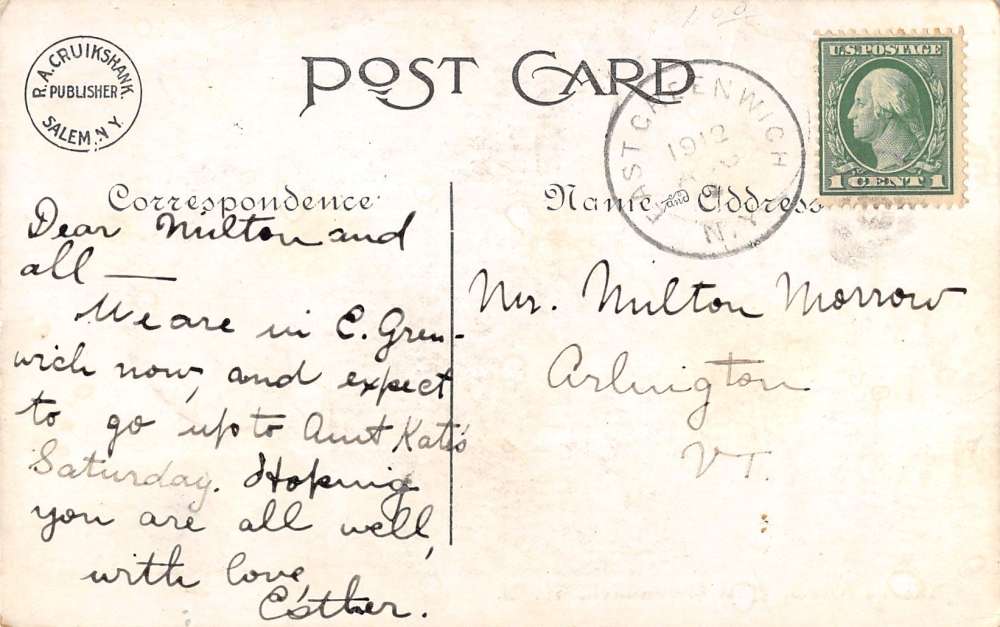 1.00
R.A. CRUIKSHANK.
PUBLISHER
SALEM, N.Y.
POST CARD
U.S. POSTAGE
1 CENT 1
EAST GREENWICH
1912
N.Y.
Correspondence
Dear Milton and
all —
We are in E. Green-
wich now, and expect
to go up to Aunt Kate's
Saturday. Hoping
you are all well,
with love,
Esther.
Name and Address
Mr. Milton Morrow
Arlington
VT.